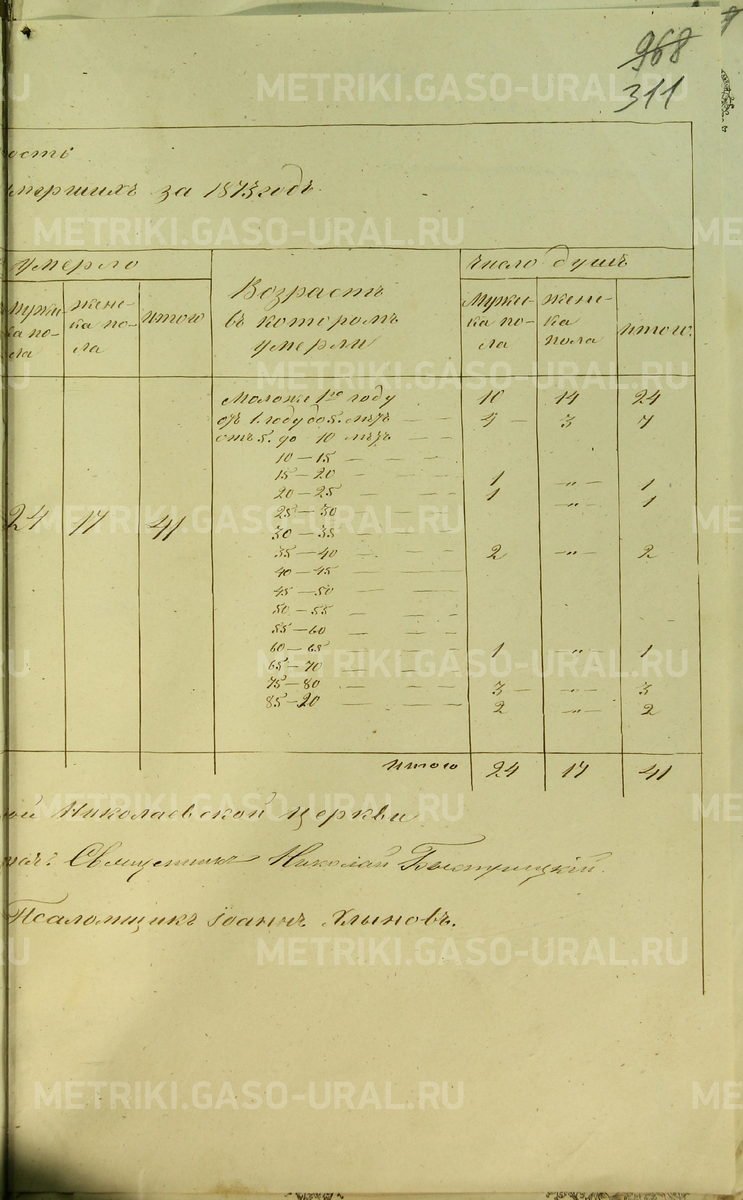 968
311
ость
умершихъ за 1873 годъ.
умерло
число душъ
Мужес-
ка по-
ла
женс-
ка по-
ла
итого
Возрастъ
въ которомъ
умерли
Мужес-
ка по-
ла
женс-
ка
пола
итого.
Моложе 1го году 10 14 24
отъ 1 году до 5. летъ — — 4 — 3 7
отъ 5. до 10 летъ — —
10 — 15 — — —
15 — 20 — — — 1 — „ — 1
20 — 25 — — — 1 — „ — 1
25 — 30 — — —
30 — 35 — — —
35 — 40 — — — 2 — „ — 2
40 — 45 — — —
45 — 50 — — —
50 — 55 — — —
55 — 60 — — —
60 — 65 — — — 1 — „ — 1
65 — 70 — — —
75 — 80 — — — 3 — „ — 3
85 — 20 — — — 2 — „ — 2
24 17 41
итого 24 17 41
ой Николаевской церкви
Священникъ Николай Быстрицкій.
Псаломщикъ Іоаннъ Хлыновъ.
METRIKI.GASO-URAL.RU